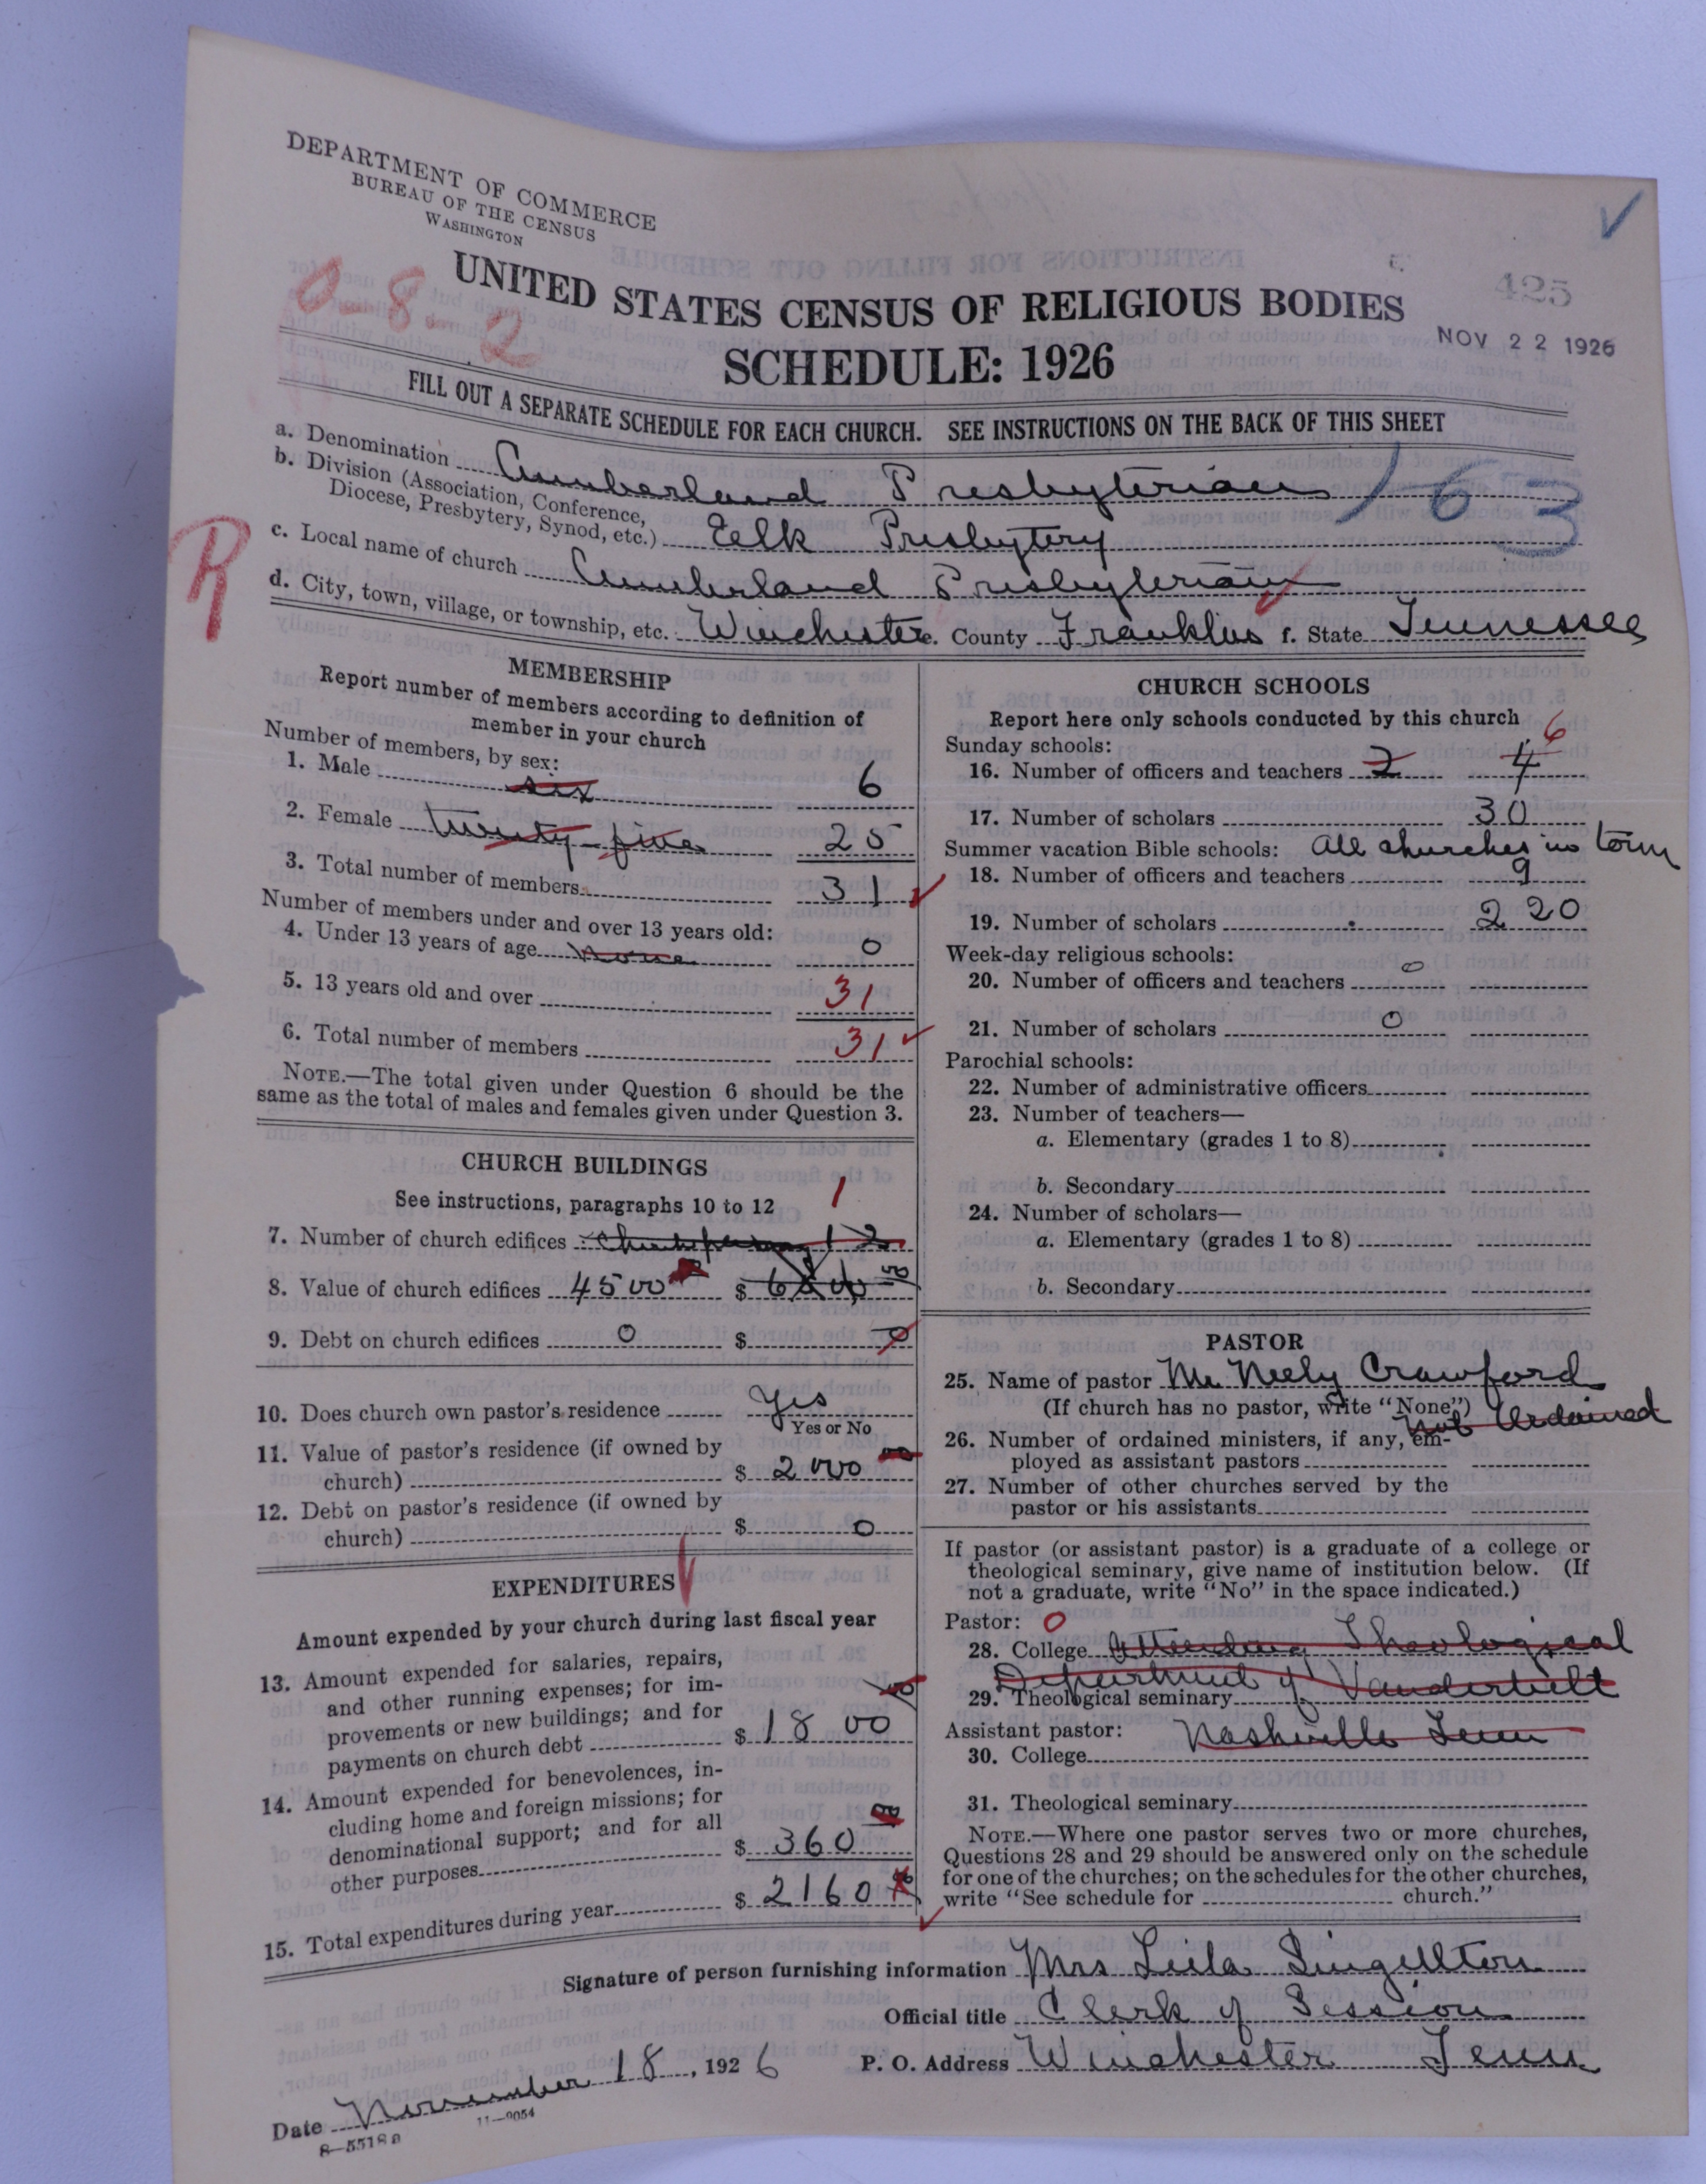 DEPARTMENT OF COMMERCE
BUREAU OF THE CENSUS
WASHINGTON
UNITED STATES CENSUS OF RELIGIOUS BODIES
SCHEDULE: 1926
0-8
2
425
NOV 22 1926
FILL OUT A SEPARATE SCHEDULE FOR EACH CHURCH. SEE INSTRUCTIONS ON THE BACK OF THIS SHEET
a. Denomination Cumberland Presbyterian 163
b. Division (Association, Conference,
Diocese, Presbytery, Synod, etc.) Eelk Presbytery
R
c. Local name of church Cumberland Presbyterian
d. City, town, village, or township, etc. Winchester e. County Franklin f. State Tennessee
MEMBERSHIP
Report number of members according to definition of
member in your church
Number of members, by sex:
1. Male six 6
2. Female twenty-five 25
3. Total number of members 31
Number of members under and over 13 years old:
4. Under 13 years of age none 0
5. 13 years old and over 31
6. Total number of members 31
NOTE.—The total given under Question 6 should be the
same as the total of males and females given under Question 3.
CHURCH BUILDINGS
See instructions, paragraphs 10 to 12
1
7. Number of church edifices 1 2
8. Value of church edifices 4500 $
9. Debt on church edifices 0 $ 0
10. Does church own pastor's residence Yes
Yes or No
11. Value of pastor's residence (if owned by
church) $ 2000 00
12. Debt on pastor's residence (if owned by
church) $ 0
EXPENDITURES
Amount expended by your church during last fiscal year
13. Amount expended for salaries, repairs,
and other running expenses; for im-
provements or new buildings; and for
payments on church debt $ 1800 00
14. Amount expended for benevolences, in-
cluding home and foreign missions; for
denominational support; and for all
other purposes $ 360 00
15. Total expenditures during year $ 2160
CHURCH SCHOOLS
Report here only schools conducted by this church
Sunday schools:
16. Number of officers and teachers 2 4 6
17. Number of scholars 30
Summer vacation Bible schools: All churches in town
18. Number of officers and teachers 9
19. Number of scholars 220
Week-day religious schools:
20. Number of officers and teachers 0
21. Number of scholars 0
Parochial schools:
22. Number of administrative officers
23. Number of teachers—
a. Elementary (grades 1 to 8)
b. Secondary
24. Number of scholars—
a. Elementary (grades 1 to 8)
b. Secondary
PASTOR
25. Name of pastor Mr Neely Crawford
(If church has no pastor, write "None") not Ordained
26. Number of ordained ministers, if any, em-
ployed as assistant pastors
27. Number of other churches served by the
pastor or his assistants
If pastor (or assistant pastor) is a graduate of a college or
theological seminary, give name of institution below. (If
not a graduate, write "No" in the space indicated.)
Pastor: 0
28. College Attending Theological
Department of Vanderbilt
29. Theological seminary
Assistant pastor: Nashville Tenn
30. College
31. Theological seminary
NOTE.—Where one pastor serves two or more churches,
Questions 28 and 29 should be answered only on the schedule
for one of the churches; on the schedules for the other churches,
write "See schedule for church."
Signature of person furnishing information Mrs Leila Singellton
Official title Clerk of Session
Date November 18, 1926 P. O. Address Winchester Tenn
11—9054
8—5518a